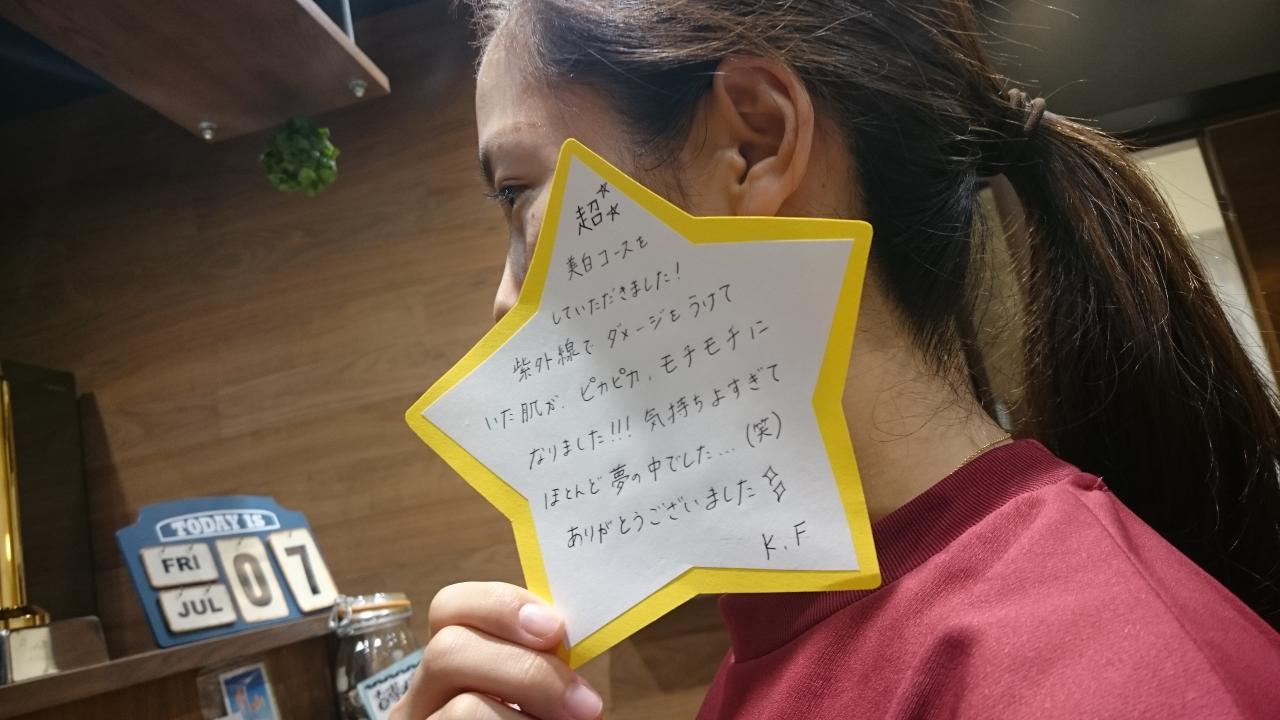 超
美白コースを
していただきました!
紫外線でダメージをうけて
いた肌が、ピカピカ、モチモチに
なりました!!! 気持ちよすぎて
ほとんど夢の中でした… (笑)
ありがとうございました
K.F
TODAY IS
FRI
JUL
07